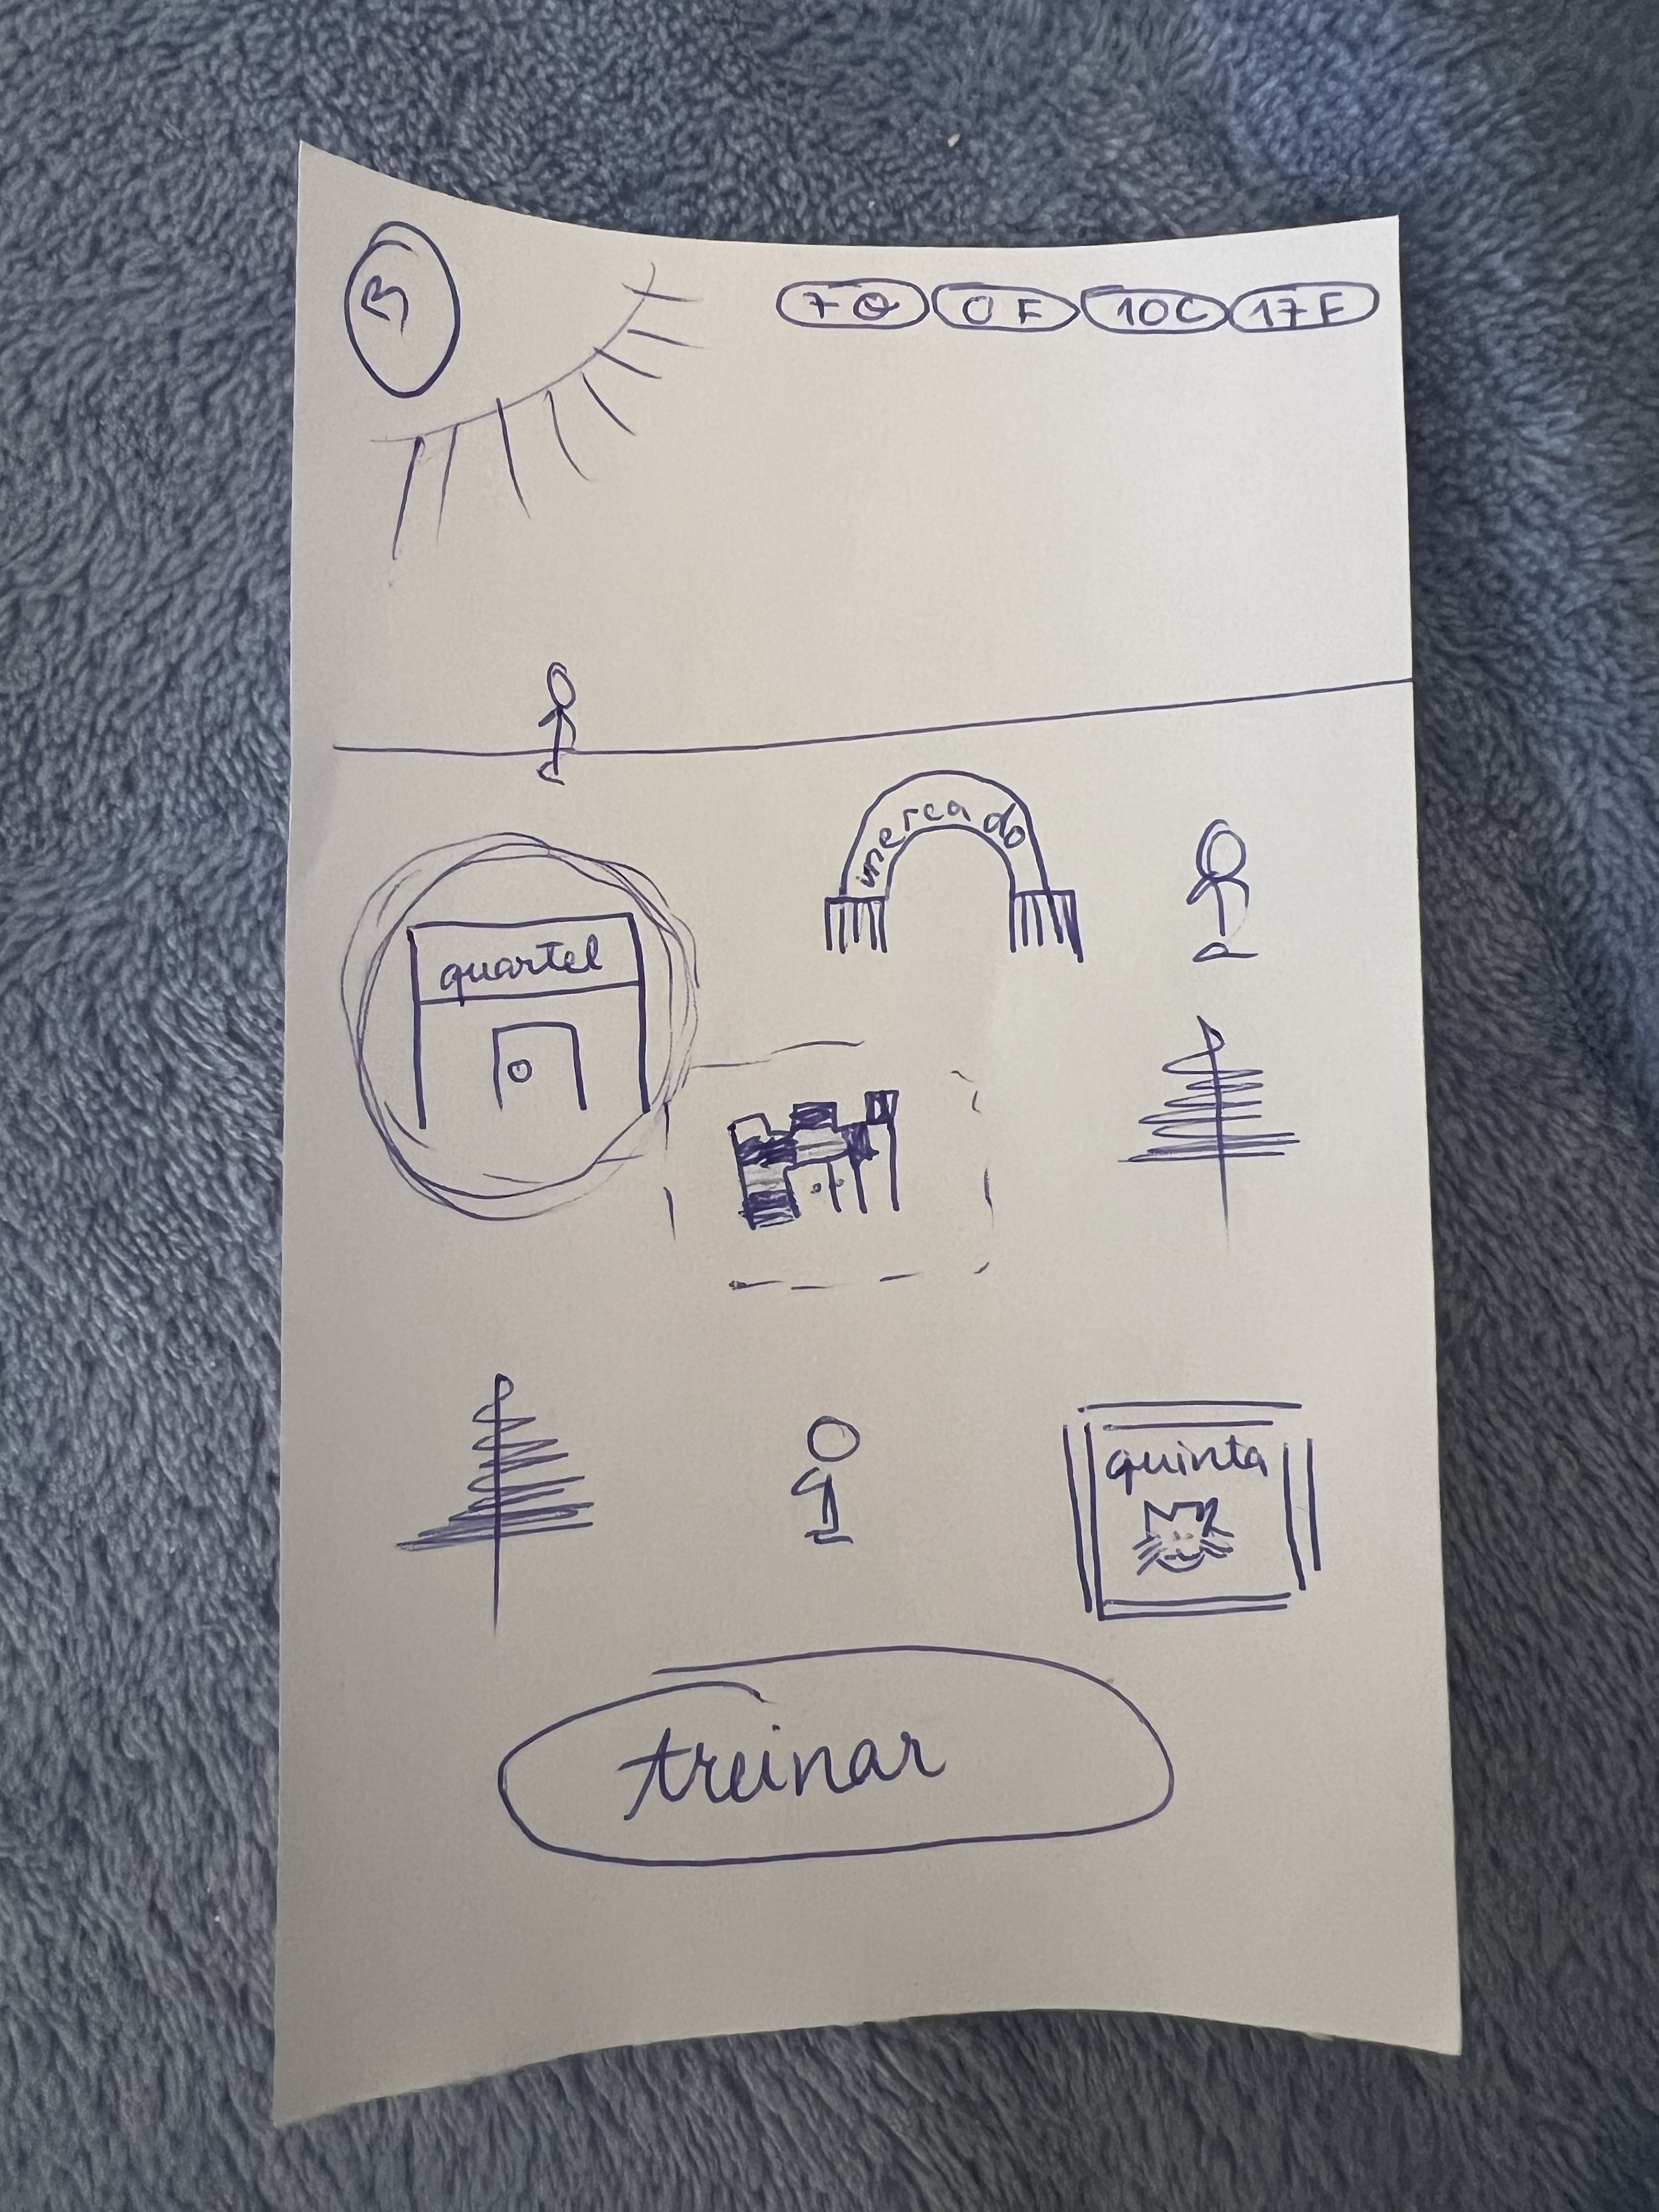 3
7 O 0 F 10 C 17 F
mercado
quartel
quinta
treinar